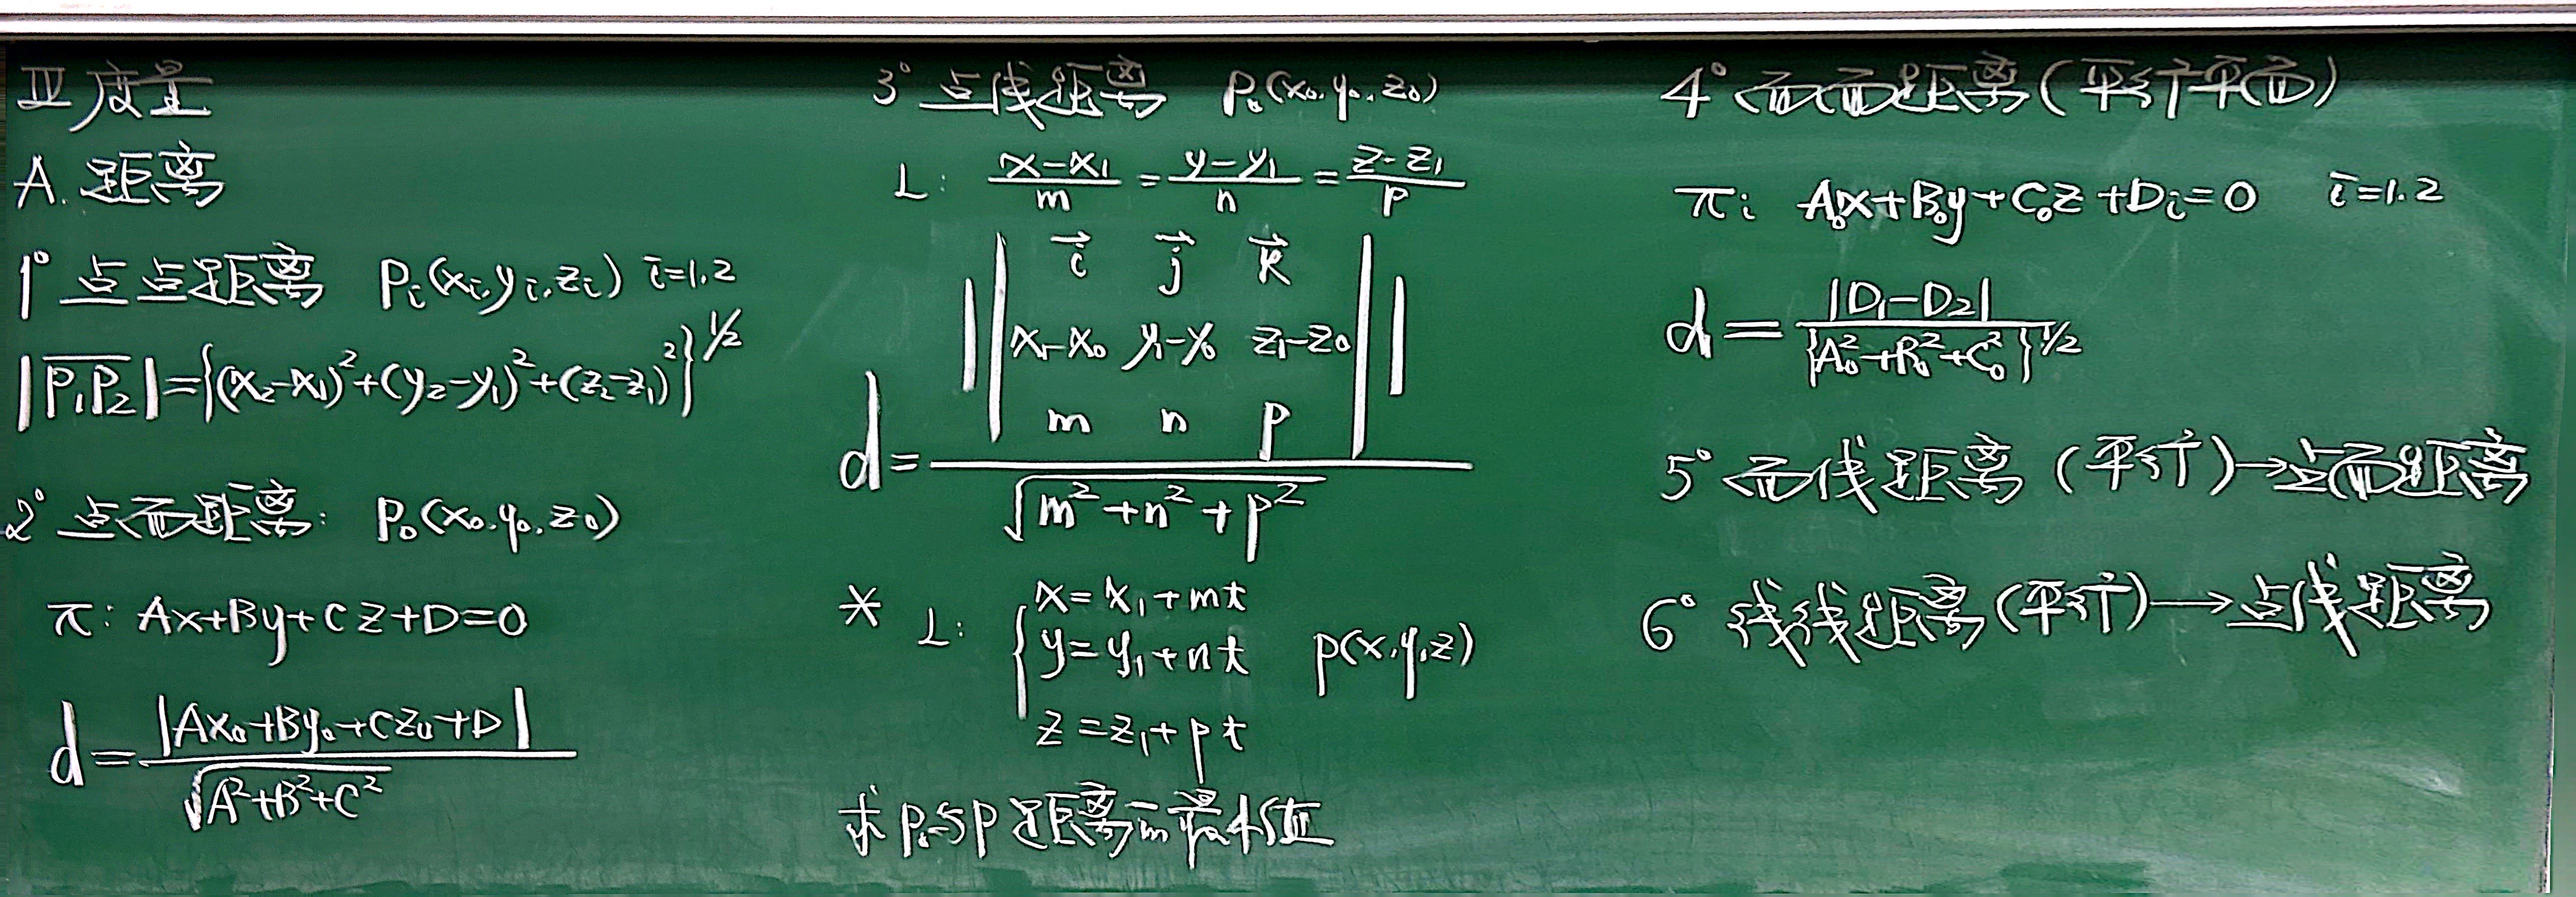 Ⅲ 度量
A. 距离
1° 点点距离 Pᵢ(xᵢ,yᵢ,zᵢ) i=1.2
|P₁P₂|={(x₂-x₁)²+(y₂-y₁)²+(z₂-z₁)²}^1/2
2° 点面距离: P₀(x₀.y₀.z₀)
π: Ax+By+Cz+D=0
d=|Ax₀+By₀+Cz₀+D|/√(A²+B²+C²)
3° 点线距离 P₀(x₀.y₀.z₀)
L: (x-x₁)/m=(y-y₁)/n=(z-z₁)/p
d= || i⃗ j⃗ k⃗
x₁-x₀ y₁-y₀ z₁-z₀
m n p || / √(m²+n²+p²)
* L: { x=x₁+mt
y=y₁+nt P(x.y.z)
z=z₁+pt
求P₀与P距离的最小值
4° 面面距离(平行平面)
πᵢ: A₀x+B₀y+C₀z+Dᵢ=0 i=1.2
d=|D₁-D₂|/{A₀²+B₀²+C₀²}^1/2
5° 面线距离(平行)→点面距离
6° 线线距离(平行)→点线距离